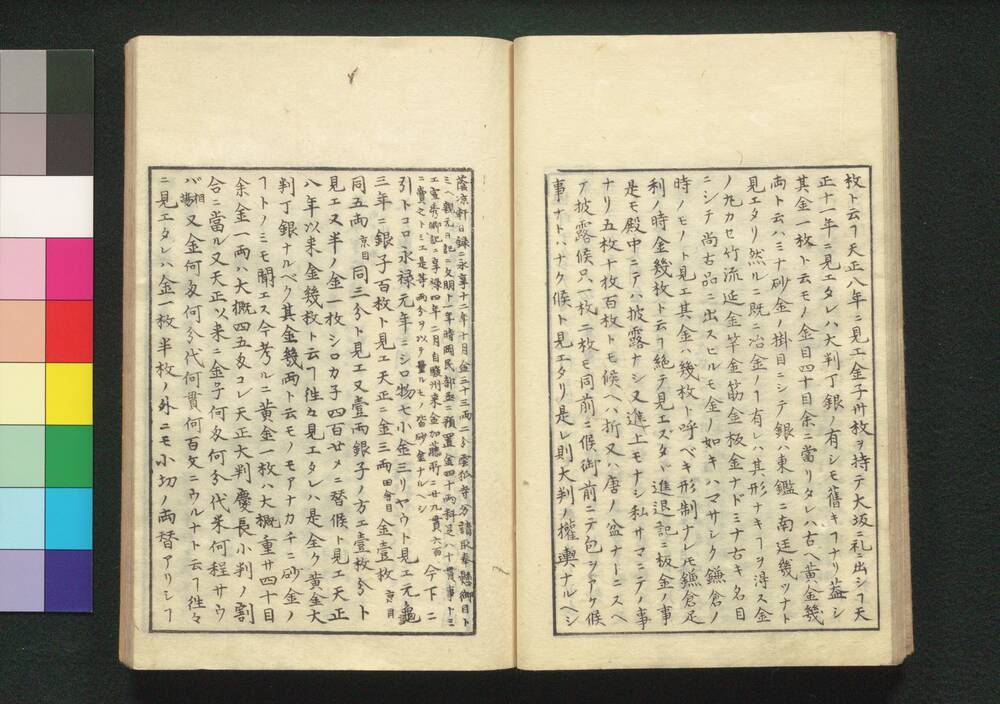 枚ト云ヿ天正八年ニ見エ金子卅枚ヲ持テ大坂ニ礼ニ出シヿ天
正十一年ニ見エタレハ大判丁銀ノ有シモ舊キヿナリ益シ
其金一枚ト云モノ金目四十目余ニ當リタレハ古ヘ黄金幾
両ト云ハミナ砂金ノ掛目ニシテ銀ハ東鑑ニ南廷幾ツナト
見エタリ然ルニ既ニ冶金ノヿ有レハ其形ナキヿヲ得ス金
ノ九カセ竹流延金竿金筋金板金ナドミナ古キ名目
ニシテ尚古品ニ出スヒルモ金ノ如キハマサシク鎌倉ノ
時ノモノト見エ其金ハ幾枚ト呼ベキ形制ナレモ鎌倉足
利ノ時金幾枚ト云ヿ絶テ見エスタヾ進退記ニ板金ノ事
是モ殿中ニテハ披露ナシ又進上モナシ私サマニテノ事
ナリ五枚十枚百枚トモ候ヘハ折又ハ唐ノ盆ナーニスヘ
テ披露候只一枚二枚モ同前ニ候御前ニテ包ヲアケ候
事ナトハナク候ト見エタリ是レ則大判ノ權輿ナルヘシ
蔭凉軒日録ニ永享十二年十月金三十三両二分雲孤寺方請取奉懸御目ト
ミ親元日記ニ文明十一年時岡民部丞ニ預置金四十両料足八十貫事トミ
エ宣秀卿記ニ享禄四年二月自駿州来金加藤所ニ廿九貫六百
ニ賣之トミエ是等両分ヲ以テ量ルモノ皆砂金ナルヘシ
今下ニ
引トコロ永禄元年ニシロ物七小金三リヤウト見エ元龜
三年ニ銀子百枚ト見エ天正ニ金三両田舎目金壹枚京目
同五両京目同三分ト見エ又壹両銀子ノ方エ壹枚分ト
見エ又半ノ金一枚シロカ子四百廿メニ替候ト見エ天正
八年以来金幾枚ト云ヿ徃々見エタレハ是全ク黄金大
判丁銀ナルベク其金幾両ト云モノモアナカチニ砂金ノ
ヿトノミモ聞エス今考ルニ黄金一枚ハ大概重サ四十目
余金一両ハ大概四五匁コレ天正大判慶長小判ノ割
合ニ當ル又天正以来ニ金子何匁何分代米何程サウ
バ相場又金何匁何分代何貫何百文ニウルナト云ヿ徃々
ニ見エタレハ金一枚半枚ノ外ニモ小切ノ両替アリシヿ